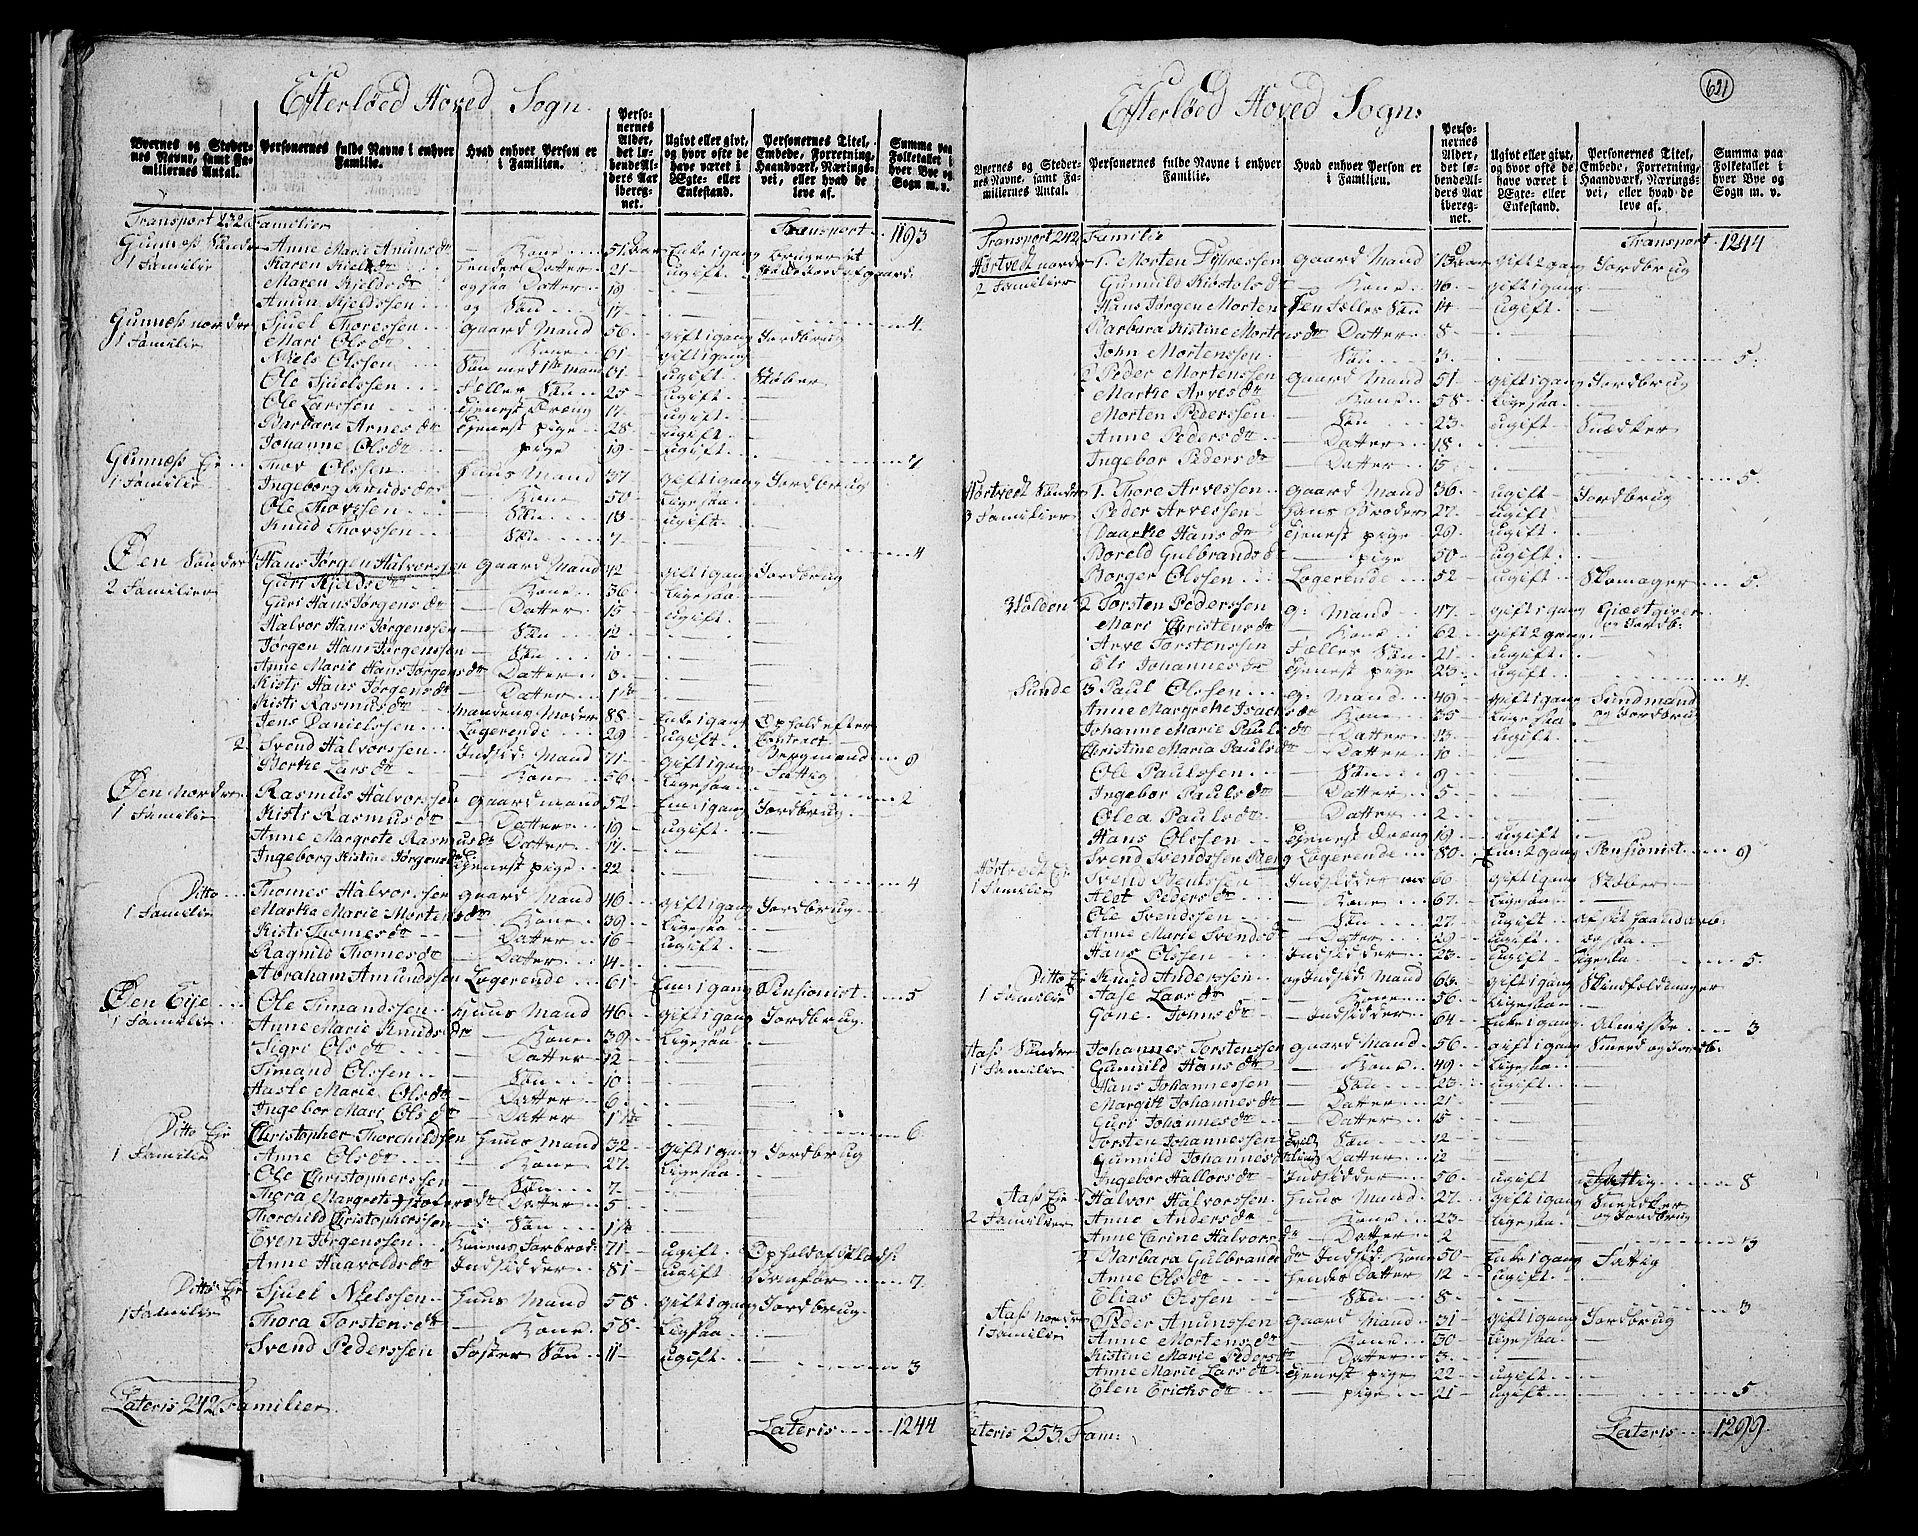 Efterløed Hoved Sogn.
Byernes og Stedernes Navne, samt Familiernes Antal. | Personernes fulde Navne i enhver Familie. | Hvad enhver Person er i Familien. | Personernes Alder, det løbende Alders Aar iberegnet. | Ugivt eller givt, og hvor ofte de have været i Ægte- eller Enkestand. | Personernes Titel, Embede, Forretning, Haandværk, Næringsvei, eller hvad de leve af. | Summa paa Folketallet i hver Bye og Sogn m. v.
Transport 232 Familier Transport 1193
Gunness Søndre Anne Mari Amunsdr Kone 51 Aar Enke 1 gang bruger et
1 Familie Karen Kieldsdr hendes Datter 21 ugift
Maren Kieldsdr ogsaa Datter 19
Amun Kjeldssen og Søn 17 4
Gunness nordre Sjuel Thoressen Gaard Mand 56 gift 1 gang Jordbrug
1 Familie Mari Olsdr Kone 61 gift 1 gang
Niels Olssen Søn med 1te Mand 61 ugift Støber
Ole Sjuelssen Fælles Søn 25 ugift
Ole Larssen Tjenest Dræng 17 ugift
Barbara Arnesdr Tjenest pige 28 ugift
Johanne Olsdr pige 19 ugift 7
Gunness Eje Thov Olssen Huus Mand 37 gift 1 gang Jordbrug
1 Familie Ingeborg Knudsdr Kone 50 Ligesaa
Ole Thovssen Søn 18 ugift
Knud Thovssen Søn 7 4
Øen Søndre 1 Hans Jørgen Halvorssen Gaard Mand 42 gift 1 gang Jordbrug
2 Familier Guri Kjeldsdr Kone 36 Ligesaa
Guri Hans Jørgensdr Datter 15 ugift
Halvor Hans Jørgenssen Søn 12
Jørgen Hans Jørgenssen Søn 10
Anne Marie Hans Jørgensdr Datter 3
Kisti Hans Jørgensdr Datter 1
Kisti Rasmusdr Mandens Moder 88 Enke 1 gang Ophold efter
Jens Danielssen Logerende 29 ugift Contract
2 Svend Halvorssen Indsid Mand 71 gift 1 gang Bergmand 9
Borke Larsdr Kone 56 Ligesaa Fattig 2
Øen Nordre Rasmus Halvorssen Gaardmand 52 Enk 1 gang Jordbrug
1 Familie Kisti Rasmusdr Datter 19 ugift
Anne Margrete Rasmusdr Datter 17
Ingeborg Kistine Jørgensdr Tjenest pige 22 4
Ditto Thomes Halvorssen Gaard Mand 46 gift 1 gang Jordbrug
1 Familie Marke Marie Mortensdr Kone 39 Ligesaa
Kisti Thomesdr Datter 16 ugift
Ragnild Thomesdr Datter 14
Abraham Amundssen Logerende 61 Enk 1 gang Pensionist 5
Øen Eije Ole Simandssen Huus Mand 46 gift 1 gang Jordbrug
1 Familie Anne Marie Knudsdr Kone 39 Ligesaa
Sigri Olsdr Datter 12
Simand Olssen Søn 10
Haste Marie Olsdr Datter 6
Ingebor Mari Olsdr Datter 1 6
Ditto Eje Christopher Thorchildsen Huus Mand 32 gift 1 gang Jordbrug
1 Familie Anne Olsdr Kone 27 Ligesaa
Ole Christopherssen Søn 7
Thora Margrete Datter 5
Thorchild Christopherssen Søn 1
Even Jørgenssen Konens Farbrod: 71 ugift Ophold af
Anne Haavoldsdr Indsidder 81 ugift 7
Ditto Eje Sjuel Nielssen Huus Mand 58 gift 1 gang Jordbrug
1 Familie Thora Torstensdr Kone 58 Ligesaa
Svend Pederssen Foster Søn 11 ugift 3
Lateris 242 Familier Lateris 1244
621
Efterløed Hoved Sogn.
Byernes og Stedernes Navne, samt Familiernes Antal. | Personernes fulde Navne i enhver Familie. | Hvad enhver Person er i Familien. | Personernes Alder, det løbende Alders Aar iberegnet. | Ugivt eller givt, og hvor ofte de have været i Ægte- eller Enkestand. | Personernes Titel, Embede, Forretning, Haandværk, Næringsvei, eller hvad de leve af. | Summa paa Folketallet i hver Bye og Sogn m. v.
Transport 242 Familie Transport 1244
Hørtvedt nordre 1 Morten Gaard Mand 73 Aar gift 2 gang Jordbrug
2 Familier Gunnild Kistolsdr Kone 46 gift 1 gang
Hans Jørgen Mortens Fælles Søn 14 ugift
Barbara Kistine Mortensdr Datter 8
John Mortenssen Søn 3 5
2 Peder Mortenssen Gaard Mand 51 gift 1 gang Jordbrug
Marke Arvesdr Kone 58 Ligesaa
Morten Pederssen Søn 23 ugift Snedker
Anne Pedersdr Datter 18
Ingebor Pedersdr Datter 15 5
Hørtvedt Søndre 1 Thore Arvessen Gaard Mand 36 ugift Jordbrug
3 Familier Peder Arvessen Hans Broder 27 ugift
Hansdr Tjenest pige 29 ugift
Boreld Gulbrandsdr pige 50 ugift
Borger Olssen Logerende 52 ugift Skomager 5
Holden 2 Torsten Pederssen G: Mand 47 gift 1 gang Giæstgiver
Mari Christensdr Kone 62 gift 2 gang og Jordb:
Arve Torstenssen Fælles Søn 21 ugift
Els Johannesdr Tjenest pige 23 ugift 4
Sunde 3 Paul Olssen G: Mand 49 gift 1 gang Sundmand
Anne Margrete Isachsdr Kone 35 Ligesaa og Jordbrug
Johanne Marie Paulsdr Datter 13 Ugift
Christine Maria Paulsdr Datter 10
Ole Paulssen Søn 9
Ingebor Paulsdr Datter 5
Olea Paulsdr Datter 2
Hans Olssen Tjenest Dræng 19 ugift
Svend Svendssen Berg Logerende 80 Enk: 2 gang Pensionist 9
Hørtvedt Eje Svend Bentssen Indsidder 66 gift 1 gang Støber
1 Familie Alet Pedersdr Kone 67 Ligesaa
Ole Svendssen Søn 27 ugift
Anne Marie Svendsdr Datter 29 ugift
Hans Olssen Indsidder 23 ugift Ligesaa 5
Ditto Eje Knud Anderssen og Indsid: Mand 65 gift 1 gang
1 Familie Aase Larsdr Kone 56 Ligesaa
Gone Johnsdr Indsidder 64 Enke 1 gang Almisse 3
Aass Søndre Johannes Torstenssen Gaard Mand 56 gift 1 gang Smed og Jordb:
1 Familie Gunnild Hansdr Kone 49 Ligesaa
Hans Johannessen Søn 23 ugift
Margith Johannesdr Datter 21
Guri Johannesdr Datter 15
Torsten Johannessen Tvil Søn 12
Gunnild Johannesdr linger Datter 12
Ingebor Hallorsdr Indsidder 56 ugift Fattig 8
Aass Eje 1 Halvor Halvorssen Huus Mand 27 gift 1 gang Snedker
2 Familier Anne Andersdr Kone 23 Ligesaa og Jordbrug
Anne Carine Halvorsdr Datter 2 3
2 Barbara Gulbrandsdr Indsid: Kone 50 Enke 1 gang Fattig
Anne Olsdr hendes Datter 12 ugift
Elias Olssen Søn 8 3
Aass nordre Peder Amunssen Gaard Mand 31 gift 1 gang Jordbrug
1 Familie Anne Mortensdr Kone 30 Ligesaa
Kistine Marie Pedersdr Datter 3
Anne Marie Larsdr Tjenest pige 22 ugift
Elen Erichsdr pige 21 ugift 5
Lateris 253 Fam: Lateris 1299